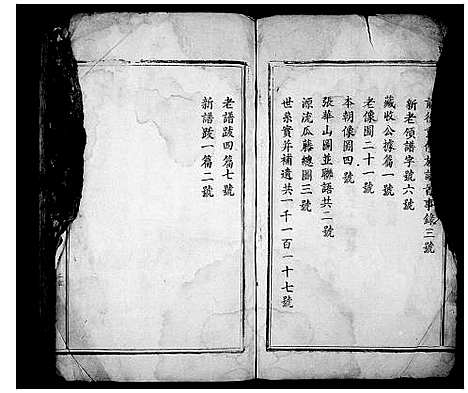 族譜舊事錄三號
新老領譜字號六號
藏收公據篇一號
老像圖二十一號
本朝像圖四號
張華山圖並聯語共二號
源流瓜藤總圖三號
世系實并補遺共一千一百一十七號
老譜跋四篇七號
新譜跋一篇二號